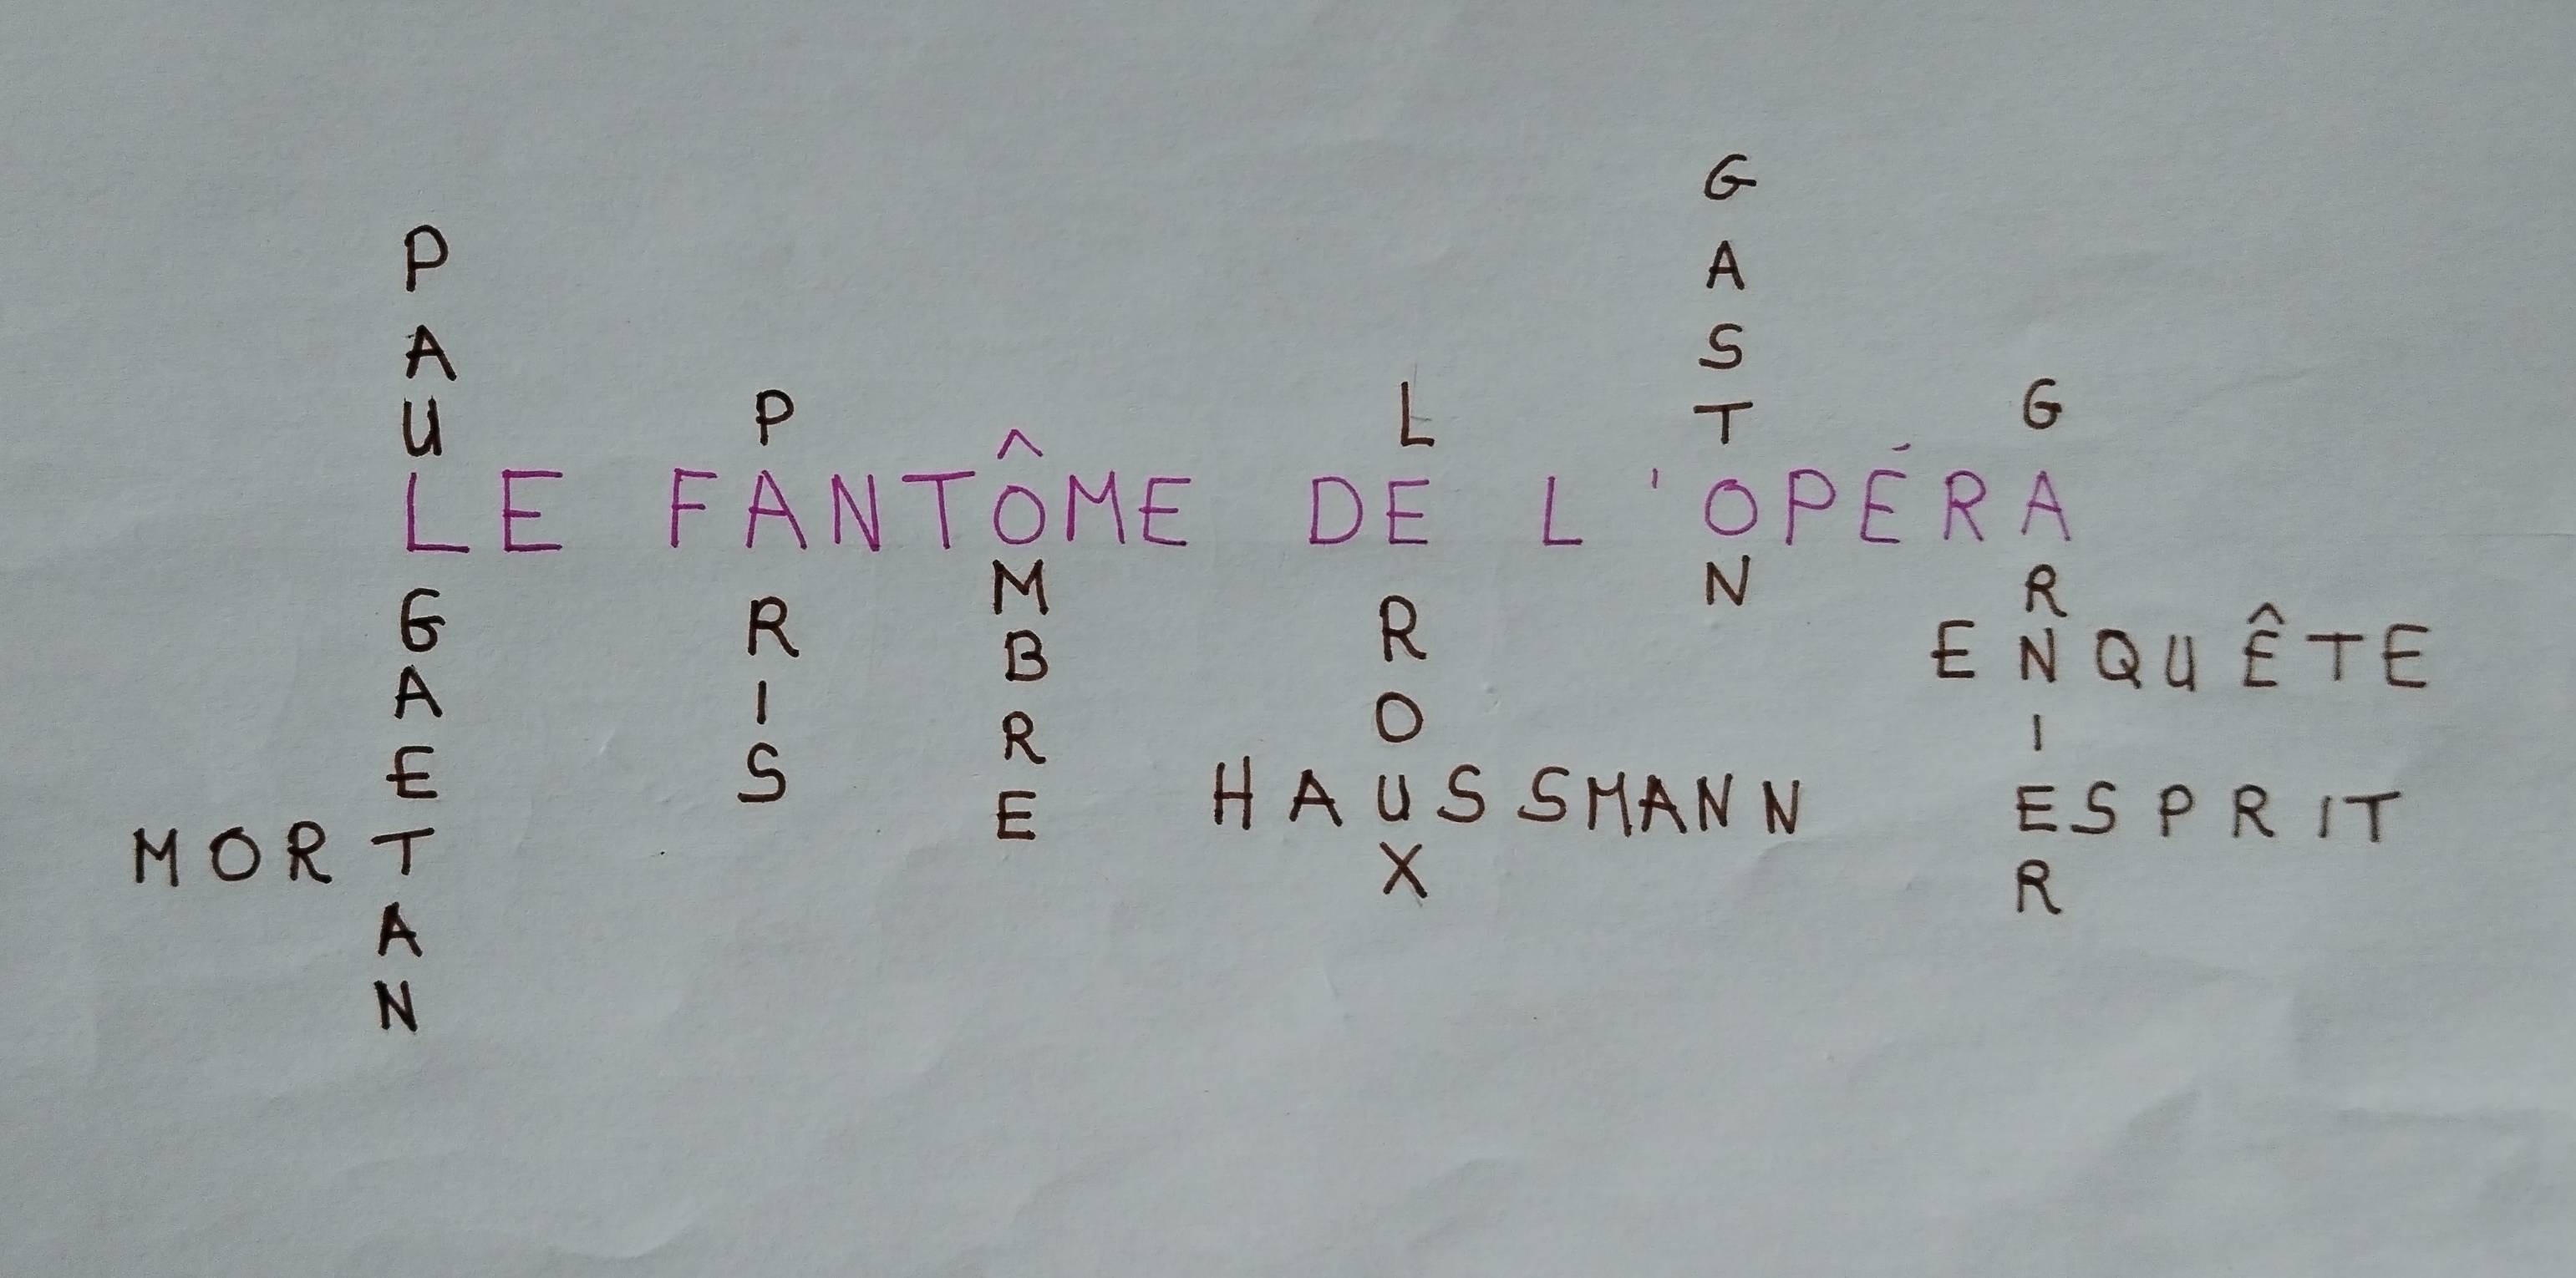 PAUL GAETAN
PARIS
OMBRE
LEROUX
GASTON
GARNIER
LE FANTÔME DE L'OPÉRA
ENQUÊTE
HAUSSMANN
ESPRIT
MORT